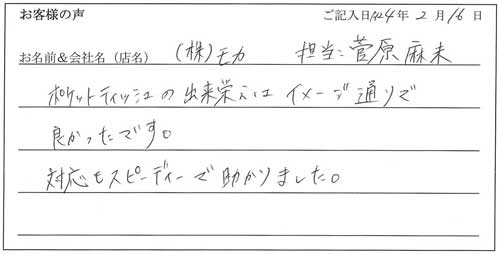 お客様の声 ご記入日 H24年 2月 16日
お名前&会社名（店名） (株)モカ 担当: 菅原 麻未
ポケットティッシュの出来栄えは イメージ通りで
良かったです。
対応もスピーディーで助かりました。